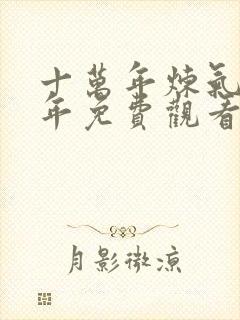 十萬年煉氣
年免費觀看
月影微涼